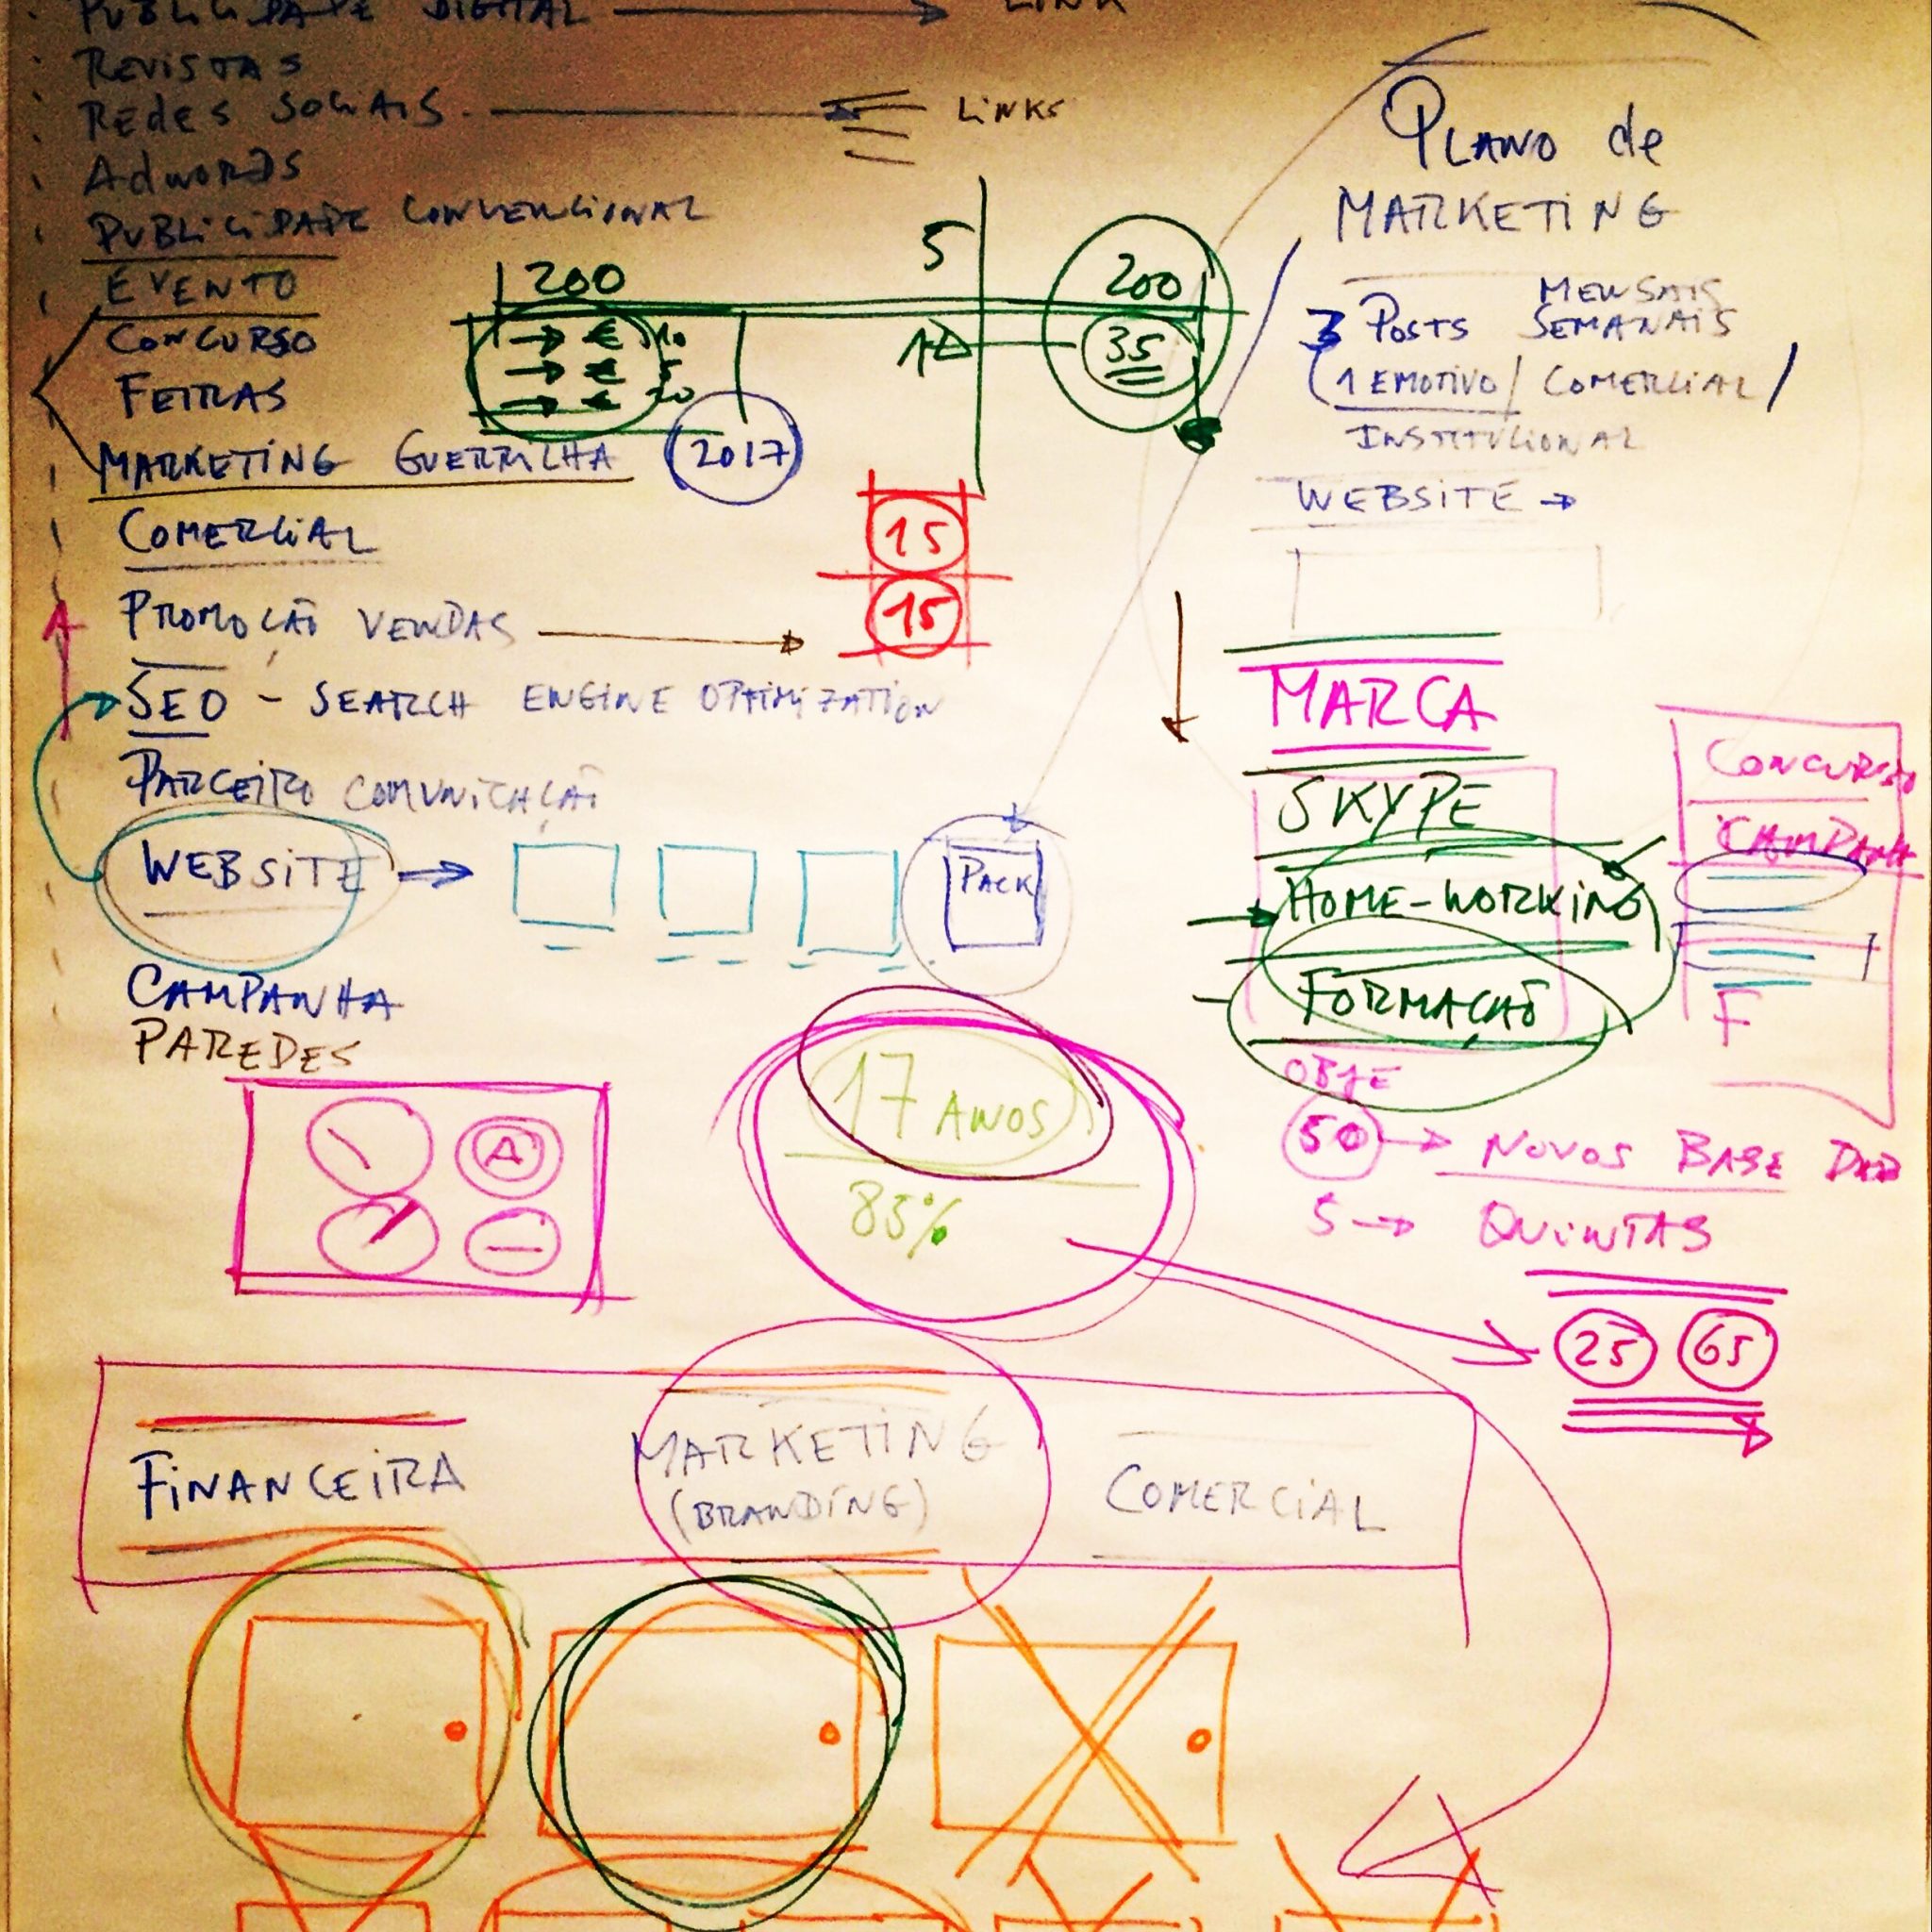 PUBLICIDADE DIGITAL LINK
REVISTAS
REDES SOCIAIS. LINKS
Adwords
PUBLICIDADE CONVENCIONAL
EVENTO
CONCURSO
FEIRAS
MARKETING GUERRILHA
COMERCIAL
PROMOÇÃO VENDAS
SEO - SEARCH ENGINE OPTIMIZATION
PARCEIRO COMUNICAÇÃO
WEBSITE
PACK
CAMPANHA
PAREDES
200
€ 10
€ 5
€ 20
2017
5
200
35
15
15
PLANO de
MARKETING
MENSAIS
3 POSTS SEMANAIS
(1 EMOTIVO / COMERCIAL /
INSTITUCIONAL
WEBSITE
MARCA
SKYPE
HOME-WORKING
FORMAÇÃO
CONCURSO
F
OBJE
50 NOVOS BASE
5 QUINTAS
25 65
A
17 ANOS
85%
FINANCEIRA
MARKETING
(BRANDING)
COMERCIAL